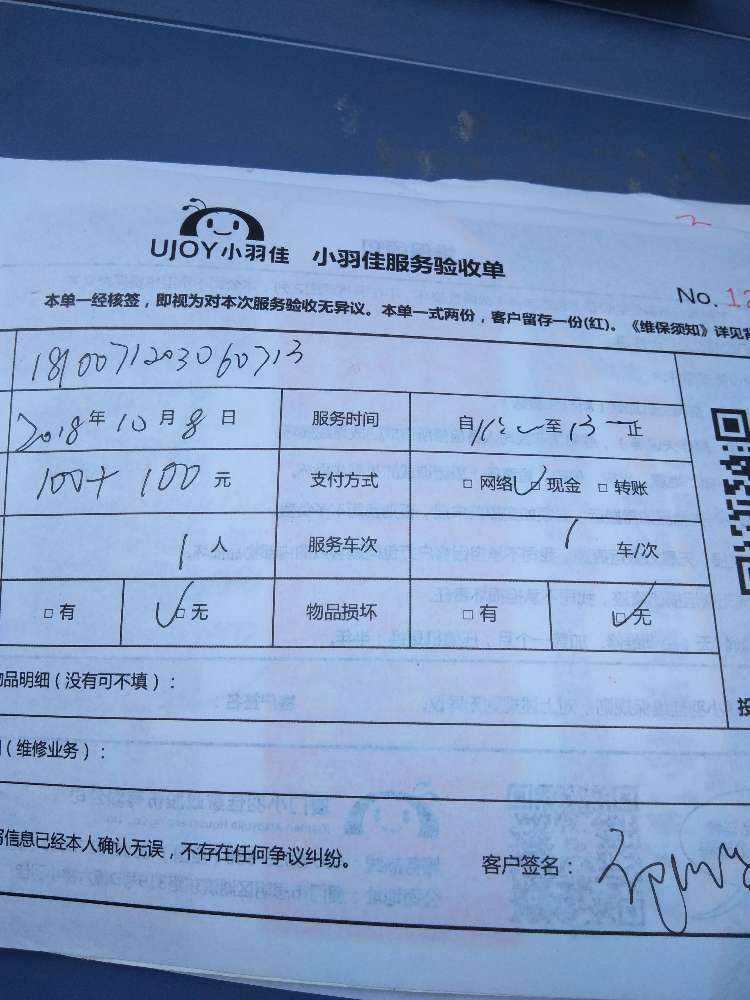 2
UJOY小羽佳 小羽佳服务验收单
No. 12
本单一经核签，即视为对本次服务验收无异议。本单一式两份，客户留存一份(红)。《维保须知》详见背
1810071203060713
2018年10月8日 服务时间 自 至 止
100+100元 支付方式 □网络 □现金 □转账
1人 服务车次 1 车/次
□有 □无 物品损坏 □有 □无
品明细（没有可不填）：
（维修业务）：
信息已经本人确认无误，不存在任何争议纠纷。 客户签名：